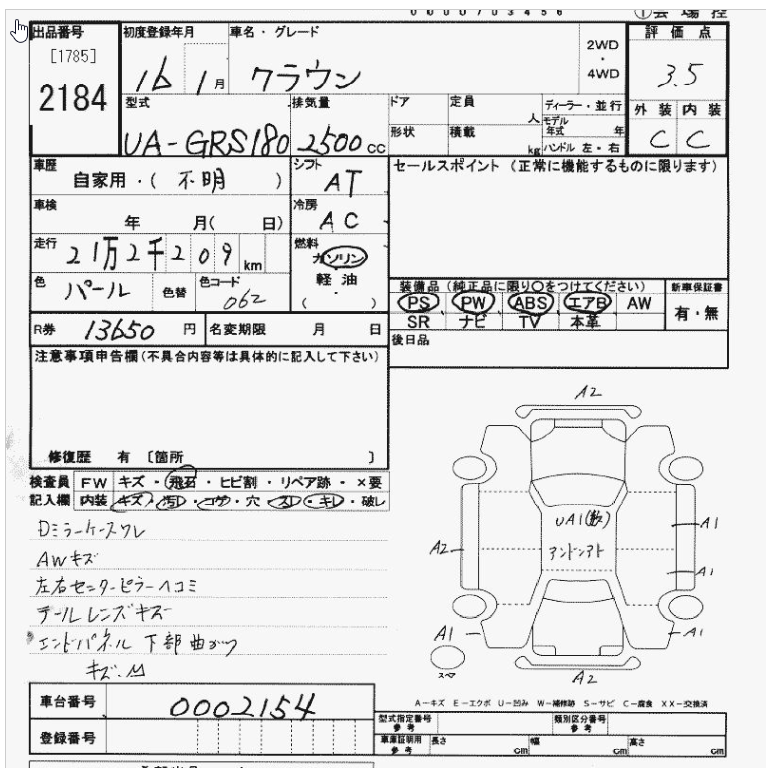 0000703456
①会場控
出品番号
[1785]
2184
初度登録年月
16 1月
車名・グレード
クラウン
2WD
・
4WD
評価点
3.5
型式
UA-GRS180
排気量
2500cc
ドア
定員
人
ディーラー・並行
モデル年式 年
形状
積載
kg
ハンドル 左・右
外装 内装
C C
車歴
自家用・( 不明 )
シフト
AT
セールスポイント (正常に機能するものに限ります)
車検
年 月( 日)
冷房
AC
走行
21万2千209km
燃料
ガソリン
軽油
・
( )
色
パール
色替
色コード
062
装備品(純正品に限り○をつけてください)
PS PW ABS エアB AW
SR ナビ TV 本革
新車保証書
有・無
R券 13650 円
名変期限 月 日
後日品
注意事項申告欄(不具合内容等は具体的に記入して下さい)
修復歴 有 〔箇所 〕
検査員記入欄
FW キズ・飛石・ヒビ割・リペア跡・×要
内装 キズ・汚レ・コゲ・穴・スレ・キレ・破レ
Dミラーケースワレ
AWキズ
左右センターピラーヘコミ
テールレンズキズ
エンドパネル下部曲がり
キズ.凹
A2
UA1(数)
A1
A2
A1
A1
A1
A2
A-キズ E-エクボ U-凹み W-補修跡 S-サビ C-腐食 XX-交換済
車台番号 0002154
登録番号
型式指定番号
参考
類別区分番号
参考
車庫証明用
参考
長さ cm
幅 cm
高さ cm